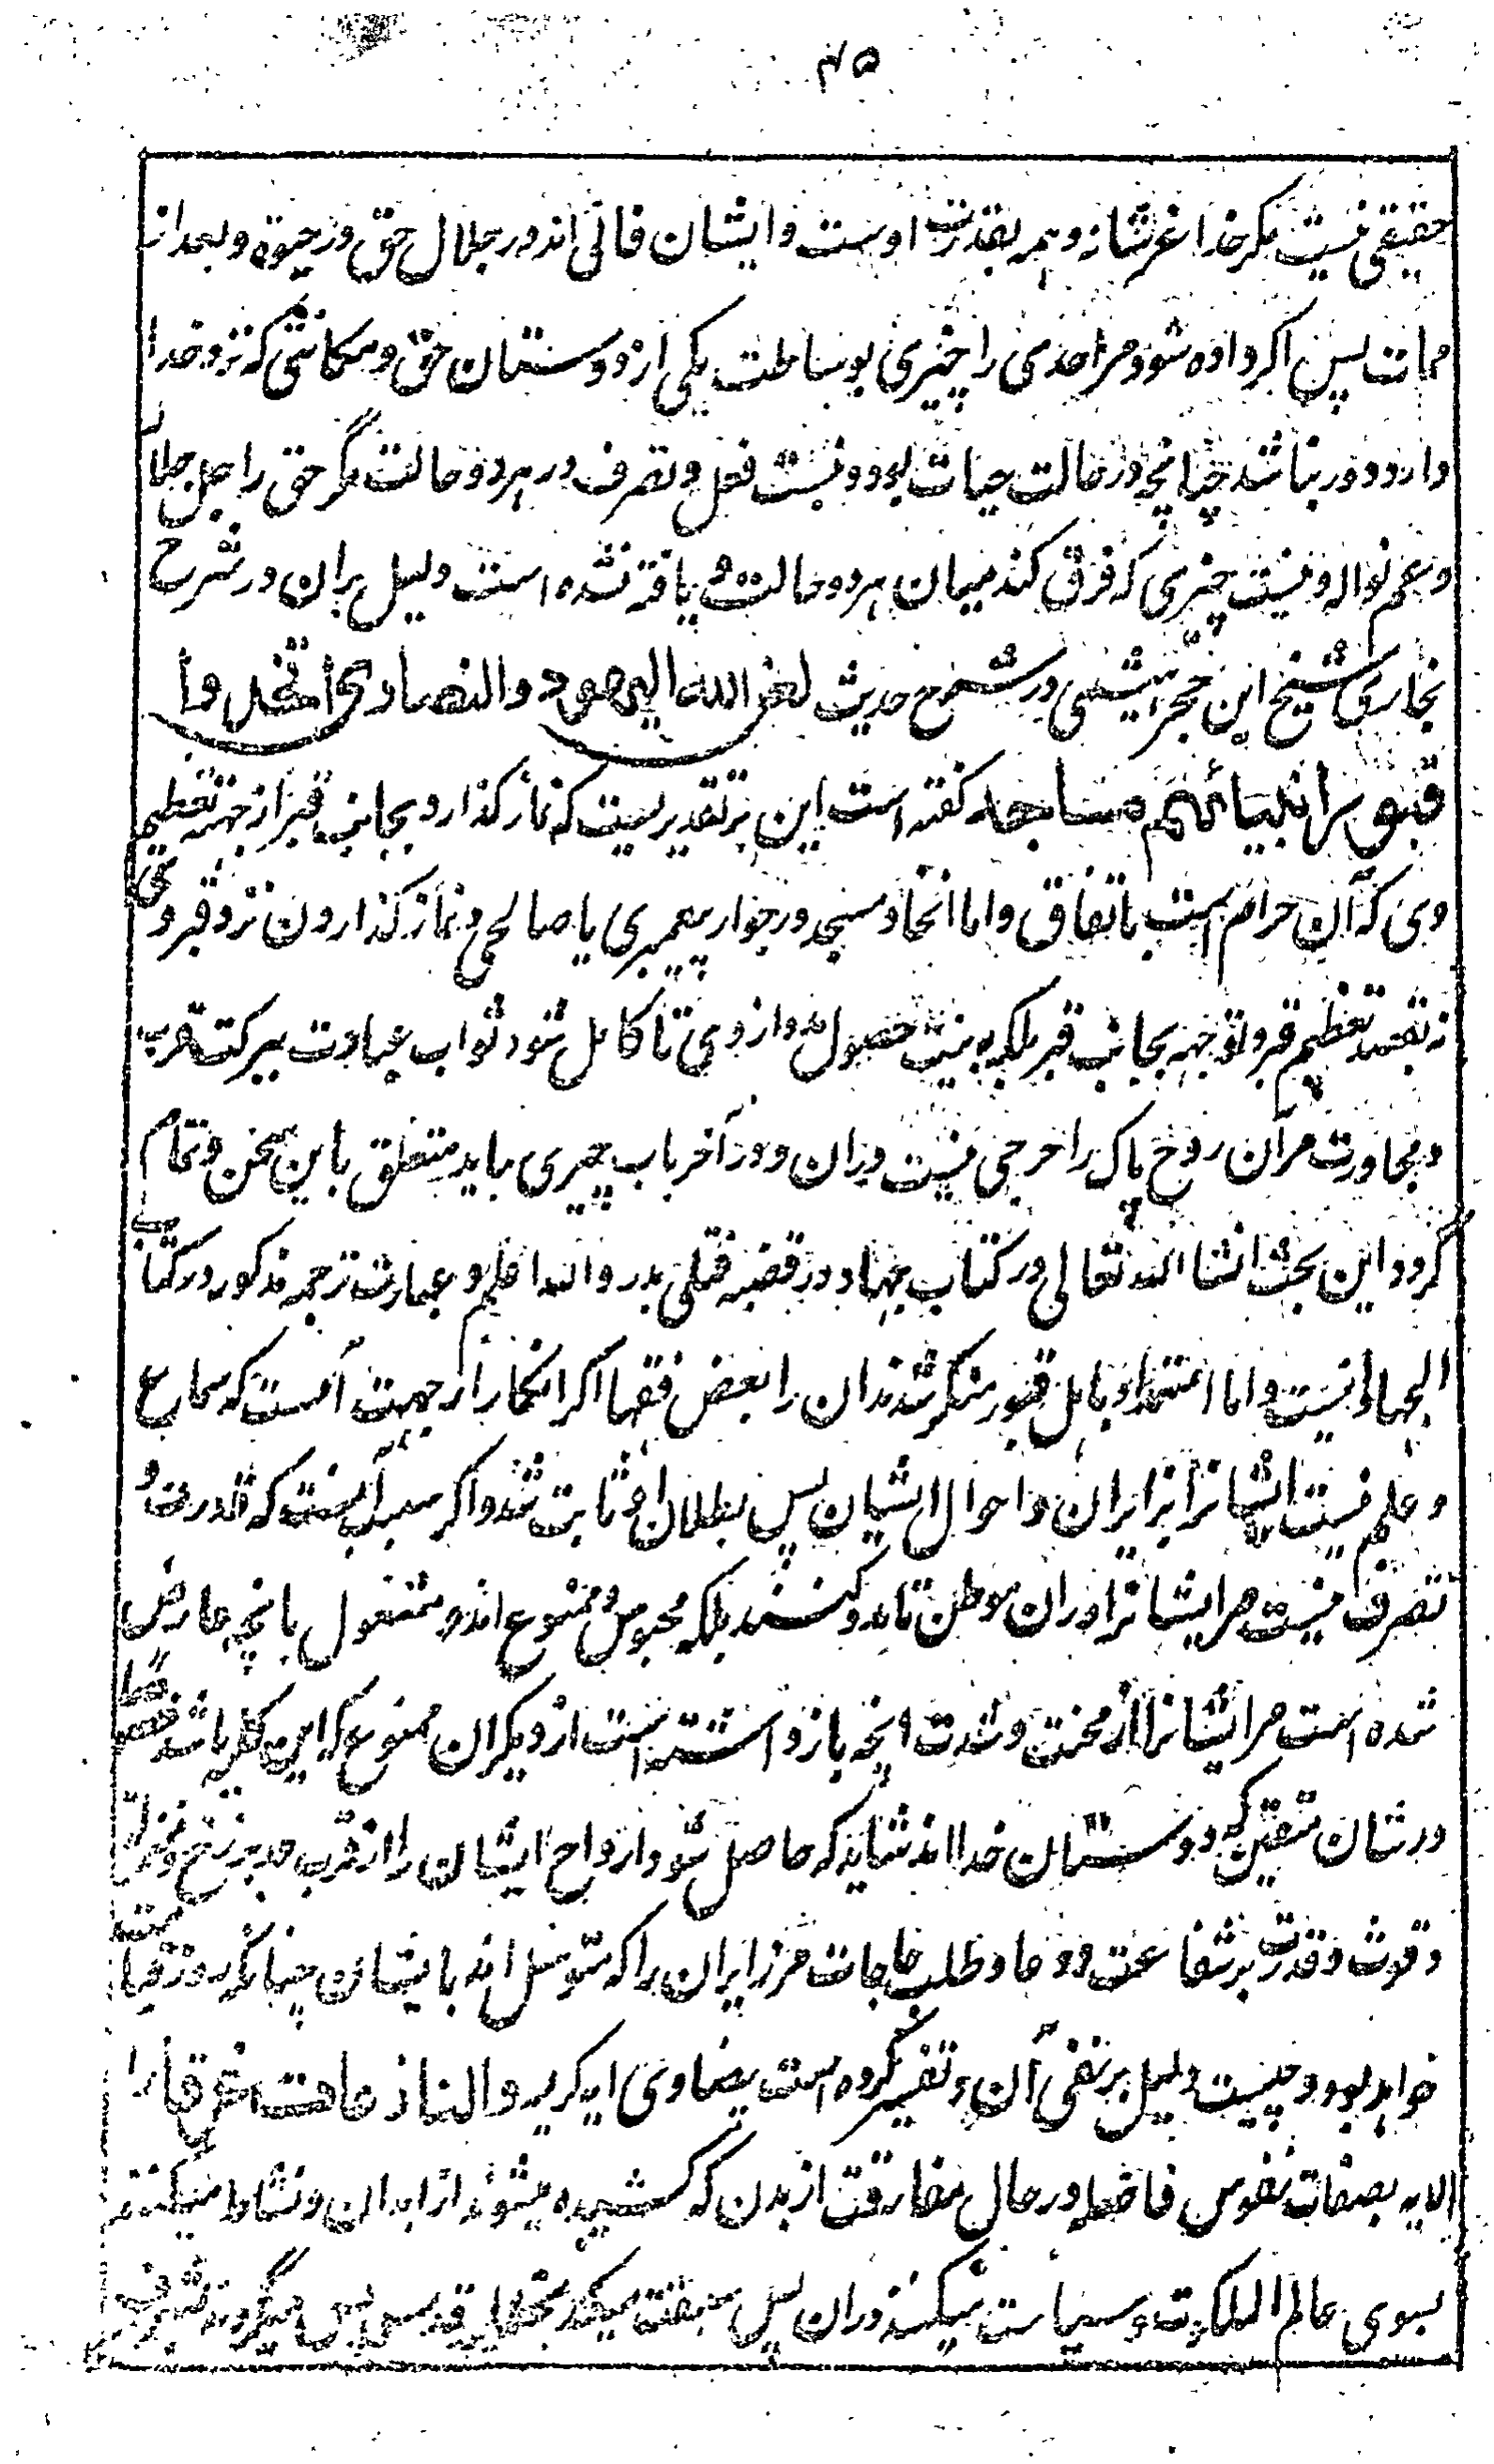 ۴۵
حقیقی نیست مگر خدا عز شانه و همه بقدرت اوست و ایشان فانی اند در جلال حق در حیوة و بعد از
ممات پس اگر داده شود مر احدی را چیزی بوساطت یکی از دوستان حق و مکانتی که نزد خدا
دارد دور نباشد چنانچه در حالت حیات بود و نیست فعل و تصرف در هر دو حالت مگر حق را جل جلاله
و عم نواله و نیست چیزی که فرق کند میان هر دو حالت و یافته نشده است دلیل بران در شرح
بخاری شیخ ابن حجر هیتمی در شرح حدیث لعن الله الیهود والنصاری اتخذوا
قبور انبیائهم مساجد گفته است این بر تقدیریست که نماز گذارد بجانب قبر از جهت تعظیم
وی که آن حرام است باتفاق و اما اتخاذ مسجد در جوار پیغمبری یا صالحی و نماز گذاردن نزد قبر وی
نه بقصد تعظیم قبر و توجه بجانب قبر بلکه به نیت حصول مدد از وی تا کامل شود ثواب عبادت ببرکت قرب
و مجاورت مر آن روح پاک را حرجی نیست دران و در آخر باب چیزی بیاید متعلق باین سخن و تمام
گردد این بحث انشا الله تعالی در کتاب جهاد در قصه قتلی بدر والله اعلم و عبارت ترجمه مذکور در کتاب
الجهاد اینست و اما استمداد باهل قبور منکر شدند آن را بعض فقها اگر انکار از جهت آنست که سماع
و علم نیست ایشانرا بزایران و احوال ایشان پس بطلان او ثابت شد و اگر بسبب آنست که قدرت و
تصرف نیست مر ایشانرا دران موطن تا مدد کنند بلکه محبوس و ممنوع اند و مشغول بانچه عارض
شده است مر ایشانرا از محنت و شدت انچه باز داشته است از دیگران ممنوع که این کلیه باشد خصوصا
در شان متقین که دوستان خدا اند شاید که حاصل شود ارواح ایشان را از قرب در برزخ و منزلت
و قوت و قدرت بر شفاعت و دعا و طلب حاجات مر زایران را که متوسل اند بایشان چنانکه روز قیامت
خواهد بود و چیست دلیل بر نفی آن و تفسیر کرده است بیضاوی ایه کریمه والنازعات غرقا را
الایه بصفات نفوس فاضله در حال مفارقت از بدن که کشیده میشوند از ابدان و نشاط میکنند
بسوی عالم الملکوت و سیاحت میکنند دران پس سبقت میکنند بحظایر قدس پس میگردند بشرف